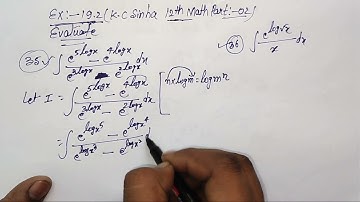 Ex:-19.2 (K.C Sinha 12th Math Part:-02)
Evaluate
35 ∫ (e^{5logx} - e^{4logx})/(e^{3logx} - e^{2logx}) dx
36 ∫ e^{log√x}/x dx
Let I = ∫ (e^{5logx} - e^{4logx})/(e^{3logx} - e^{2logx}) dx [n×logm = logm^n
= ∫ (e^{logx^5} - e^{logx^4})/(e^{logx^3} - e^{logx^2})